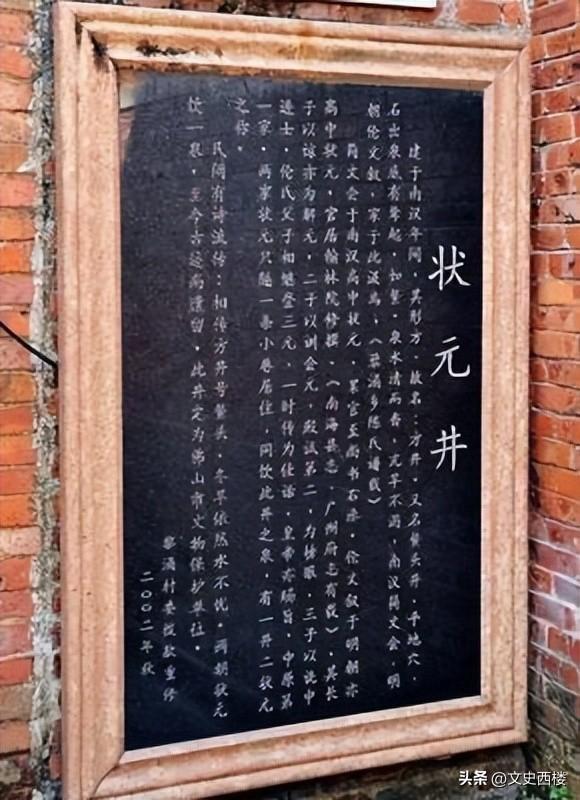 状元井
建于南汉年间，其形方，故名：方井，又名鳌头井，平地穴，
石出泉底有拳起，如鳌，泉水清而香，亢旱不涸，南汉简文会，明
朝伦文叙，家于此汲焉，《黎涌乡陈氏谱载》
简文会于南汉高中状元，累官至尚书右丞，伦文叙于明朝亦
高中状元，官居翰林院修撰，《南海县志，广州府志有载》，其长
子以谅亦为解元，二子以训会元，殿试第二，为榜眼，三子以诜中
进士，伦氏父子相继登三元，一时传为佳话，皇帝亦赐旨，中原第
一家，两家状元只隔一条小巷居住，同饮此井之泉，有一井二状元
之称。
民间有诗流传：相传方井号鳌头，冬旱依然水不忧，两朝状元
饮一泉，至今古迹尚遗留，此井定为佛山市文物保护单位。
黎涌村委拨款重修
二00二年秋
头条 @文史西楼